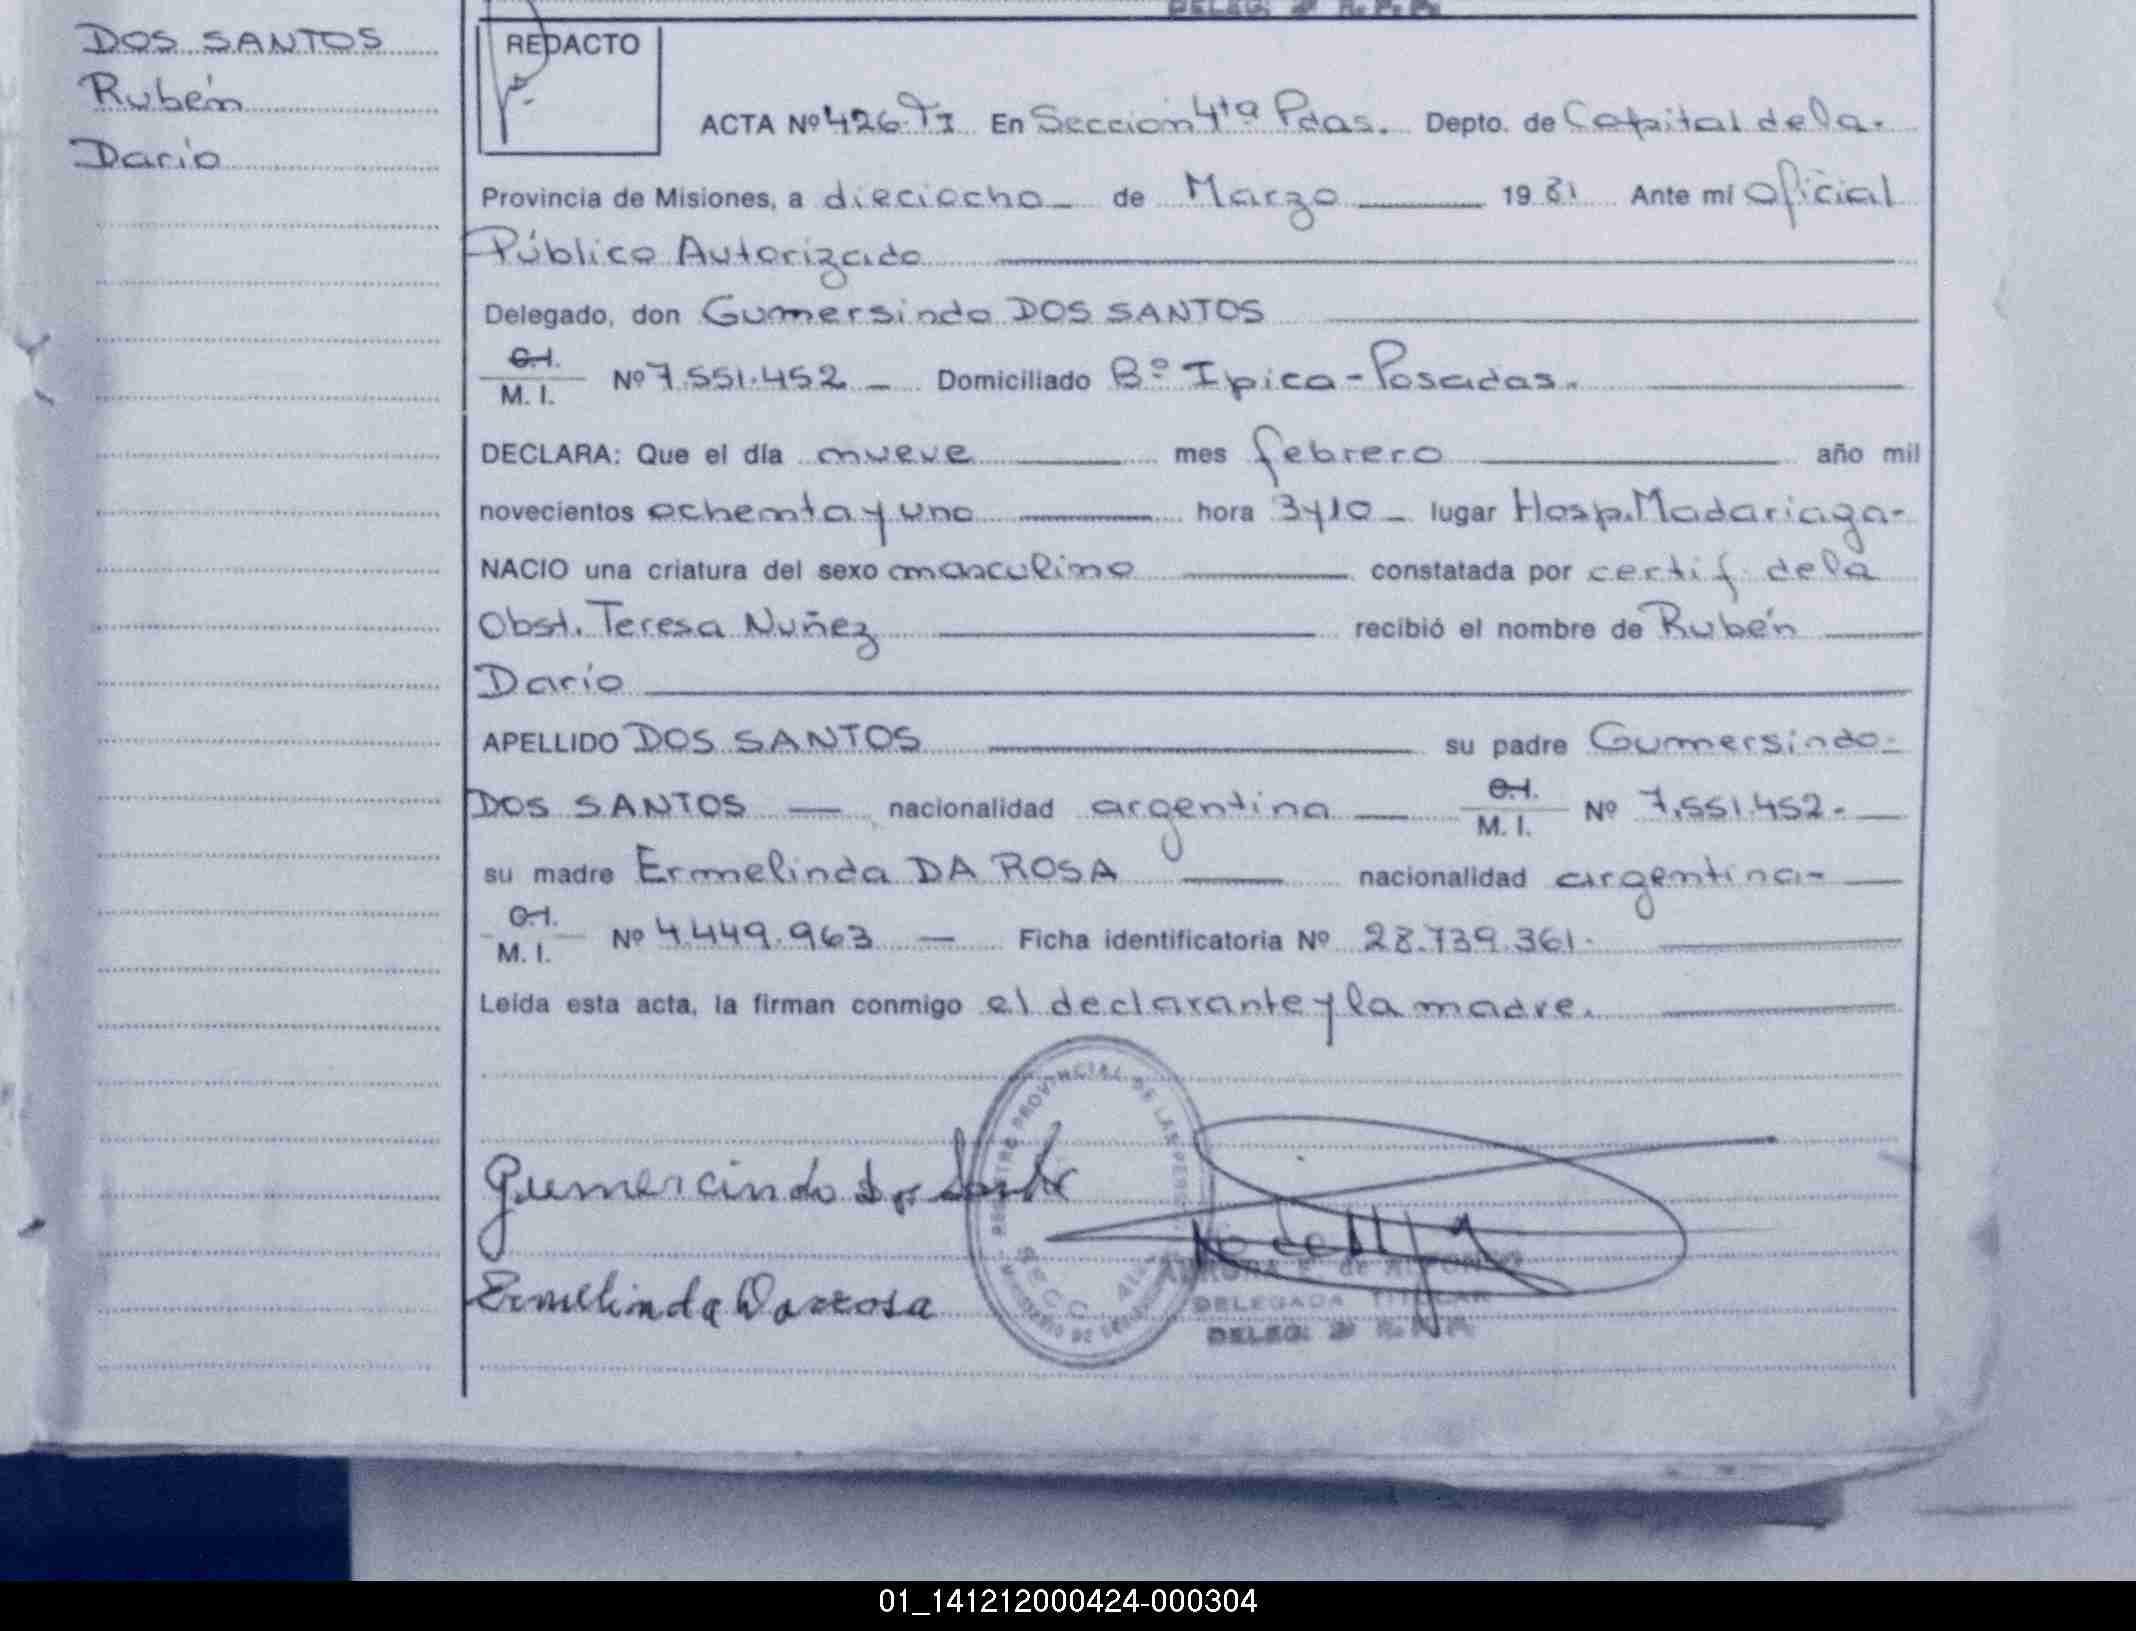 DELEG. 2ª R.P.P.
DOS SANTOS
Rubén
Darío
REDACTO
ACTA Nº 426. TI En Sección 4ta Pdas. Depto. de Capital de la.
Provincia de Misiones, a dieciocho de Marzo 1981 Ante mí Oficial
Público Autorizado
Delegado, don Gumersindo DOS SANTOS
C.I.
M. I. Nº 7.551.452 - Domiciliado Bº Ipica-Posadas.
DECLARA: Que el día nueve mes febrero año mil
novecientos ochenta y uno hora 3y10 - lugar Hosp. Madariaga-
NACIO una criatura del sexo masculino constatada por certif. de la
Obst. Teresa Nuñez recibió el nombre de Rubén
Darío
APELLIDO DOS SANTOS su padre Gumersindo-
DOS SANTOS — nacionalidad argentina C.I.
M. I. Nº 7.551.452-
su madre Ermelinda DA ROSA nacionalidad argentina-
C.I.
M. I. Nº 4.449.963 — Ficha identificatoria Nº 28.739.361.
Leída esta acta, la firman conmigo el declarante y la madre.
REGISTRO PROVINCIAL DE LAS PERS
SECC
Gumercindo dos Santos
Ermelinda Darrosa
DE ALFONSO
DELEGADA TITULAR
DELEG. 2ª R.P.P.
01_141212000424-000304